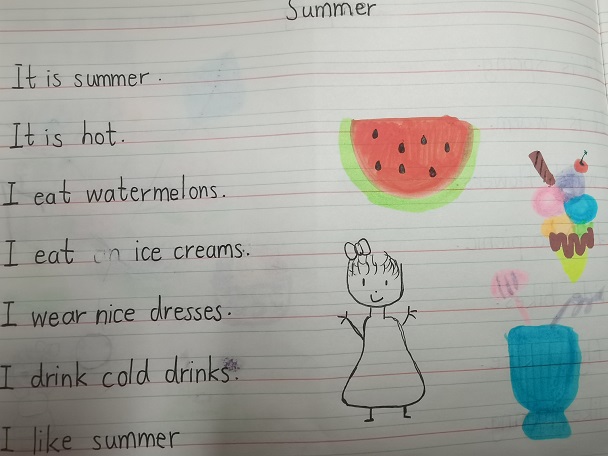 Summer
It is summer.
It is hot.
I eat watermelons.
I eat ice creams.
I wear nice dresses.
I drink cold drinks.
I like summer